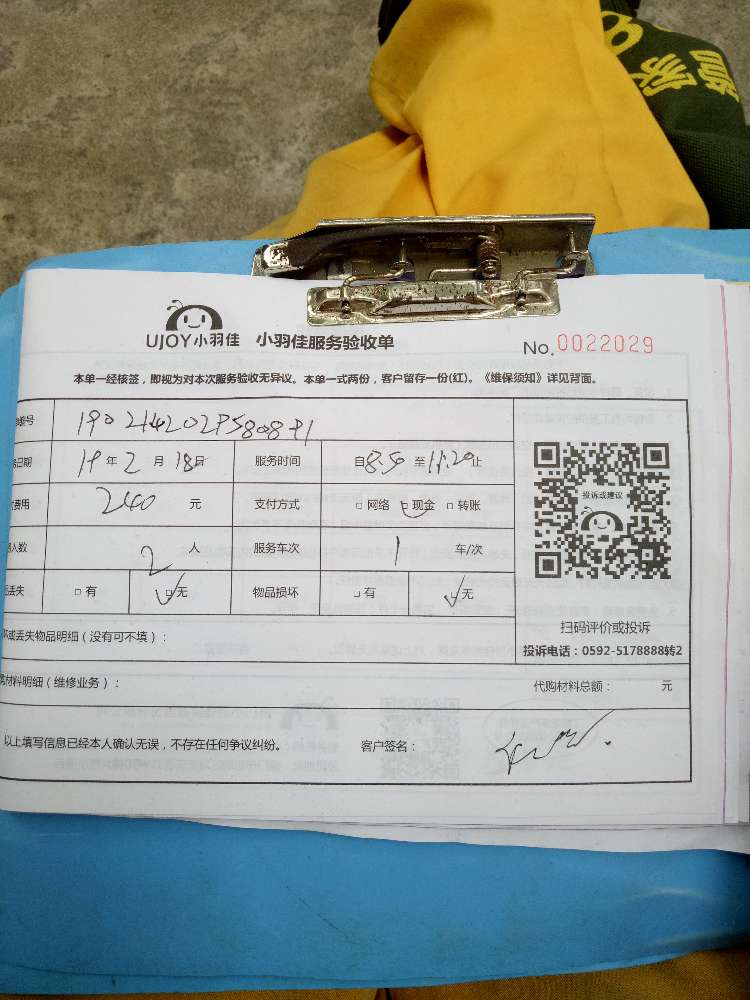 家
管
UJOY小羽佳 小羽佳服务验收单 No.0022029
本单一经核签，即视为对本次服务验收无异议。本单一式两份，客户留存一份(红)。《维保须知》详见背面。
编号
日期 19年2月18日 服务时间 自8:50至11:20止
费用 240 元 支付方式 □网络 □现金 □转账
投诉或建议
人数 2 人 服务车次 1 车/次
丢失 □有 □无 物品损坏 □有 □无
扫码评价或投诉
坏或丢失物品明细（没有可不填）：
投诉电话：0592-5178888转2
材料明细（维修业务）： 代购材料总额： 元
以上填写信息已经本人确认无误，不存在任何争议纠纷。 客户签名：